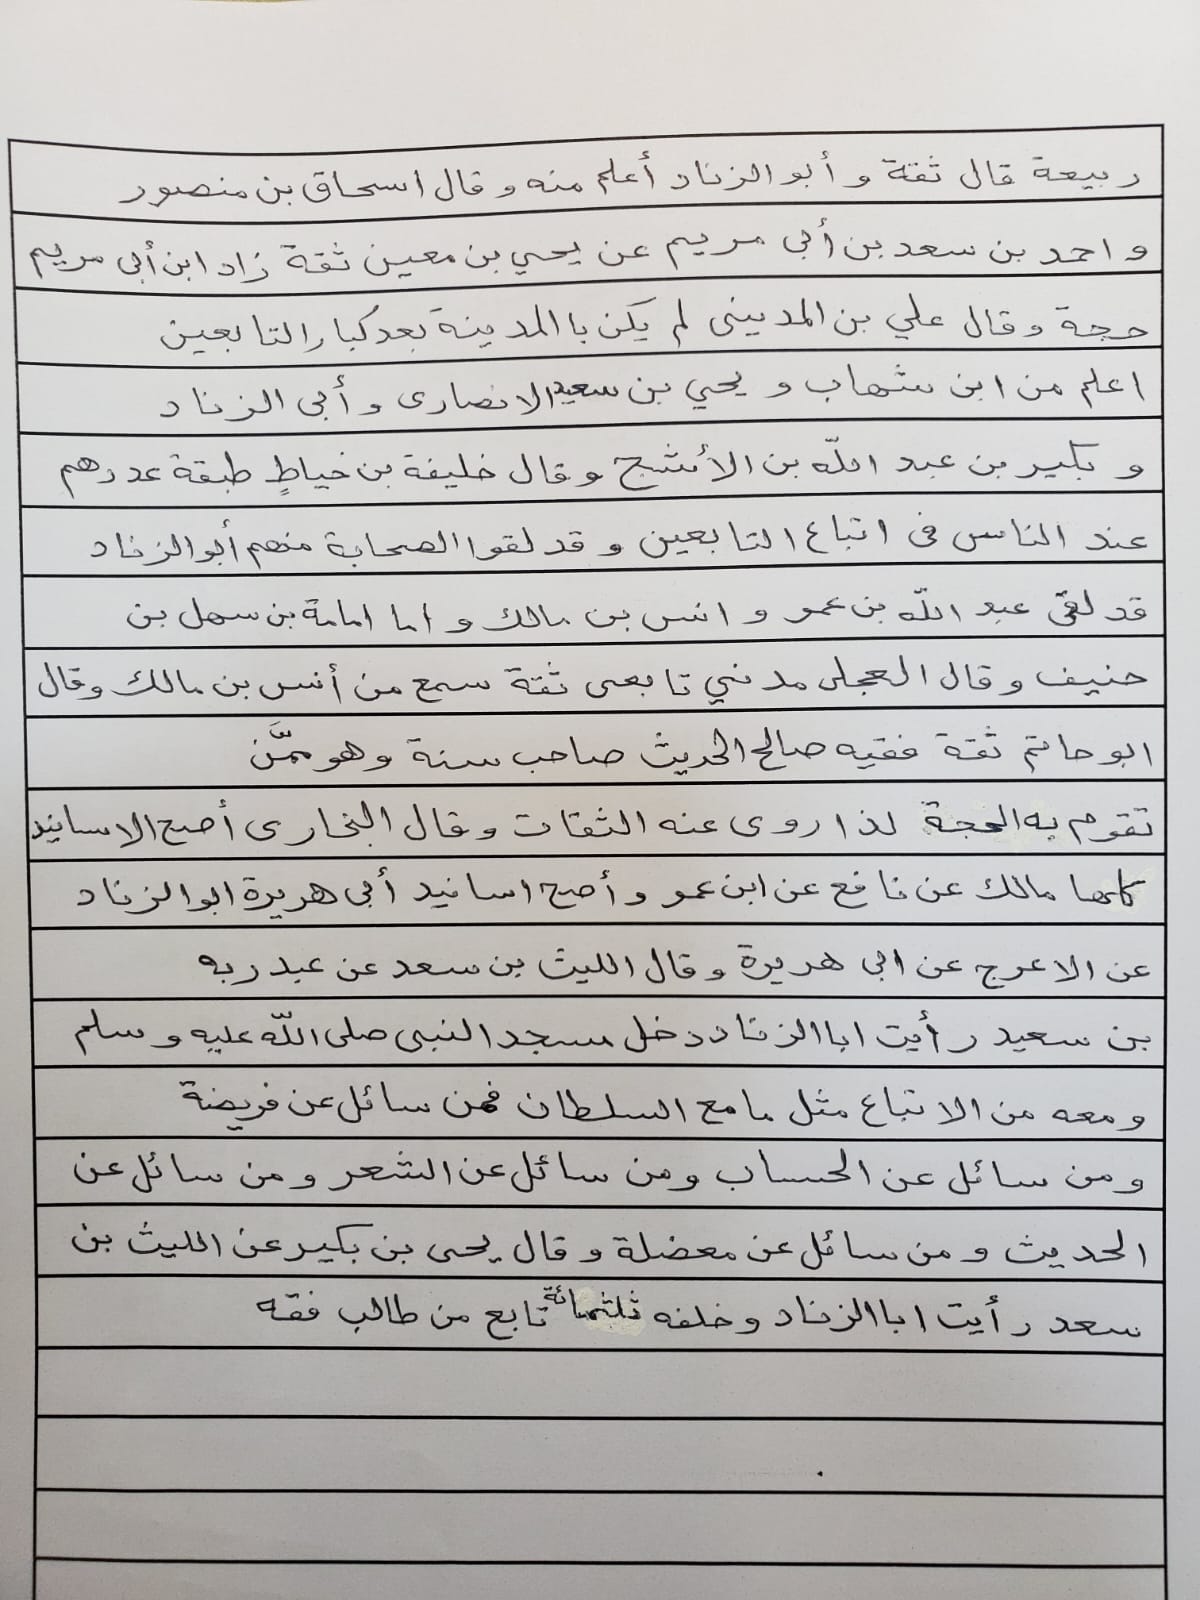 ربيعة قال ثقة و أبو الزناد أعلم منه و قال اسحاق بن منصور
و احمد بن سعد بن أبى مريم عن يحيي بن معين ثقة زاد ابن أبى مريم
حجة وقال علي بن المدينى لم يكن باالمدينة بعد كبار التابعين
اعلم من ابن شهاب و يحيي بن سعيد الانصارى و أبى الزناد
و بكير بن عبد اللّه بن الأشج و قال خليفة بن خياطٍ طبقة عددهم
عند الناس فى اتباع التابعين و قد لقوا الصحابة منهم أبو الزناد
قد لقى عبد اللّه بن عمر و انس بن مالك و اما امامة بن سهل بن
حنيف و قال العجلى مدنى تابعى ثقة سمع من أنس بن مالك وقال
ابو حاتم ثقة فقيه صالح الحديث صاحب سنة وهو ممَّن
تقوم به الحجة لذا روى عنه الثقات و قال البخارى أصح الاسانيد
كلها مالك عن نافع عن ابن عمر و أصح اسانيد أبى هريرة ابو الزناد
عن الاعرج عن ابى هريرة و قال الليث بن سعد عن عبد ربه
بن سعيد رأيت ابا الزناد دخل مسجد النبى صلى اللّه عليه و سلم
و معه من الاتباع مثل ما مع السلطان فمن سائل عن فريضة
و من سائل عن الحساب و من سائل عن الشعر و من سائل عن
الحديث و من سائل عن معضلة و قال يحى بن بكير عن الليث بن
سعد رأيت ابا الزناد و خلفه ثلثمائة تابع من طالب فقه